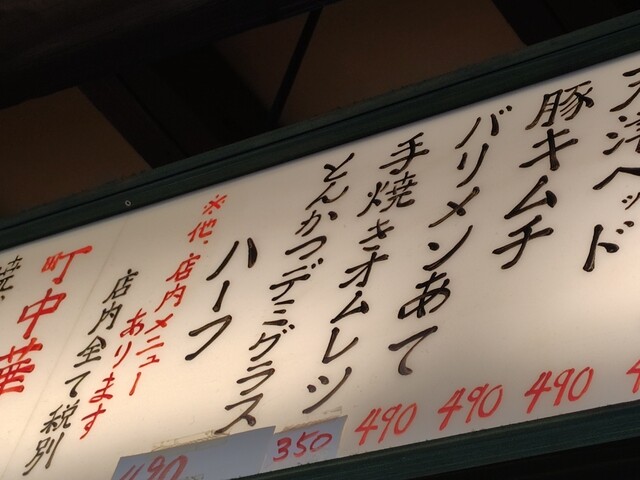 津ヘッド
490
豚キムチ
490
バリメンあて
490
手焼きオムレツ
350
とんかつデミグラス
490
ハーフ
※他、店内メニュー
あります
店内全て税別
町中華